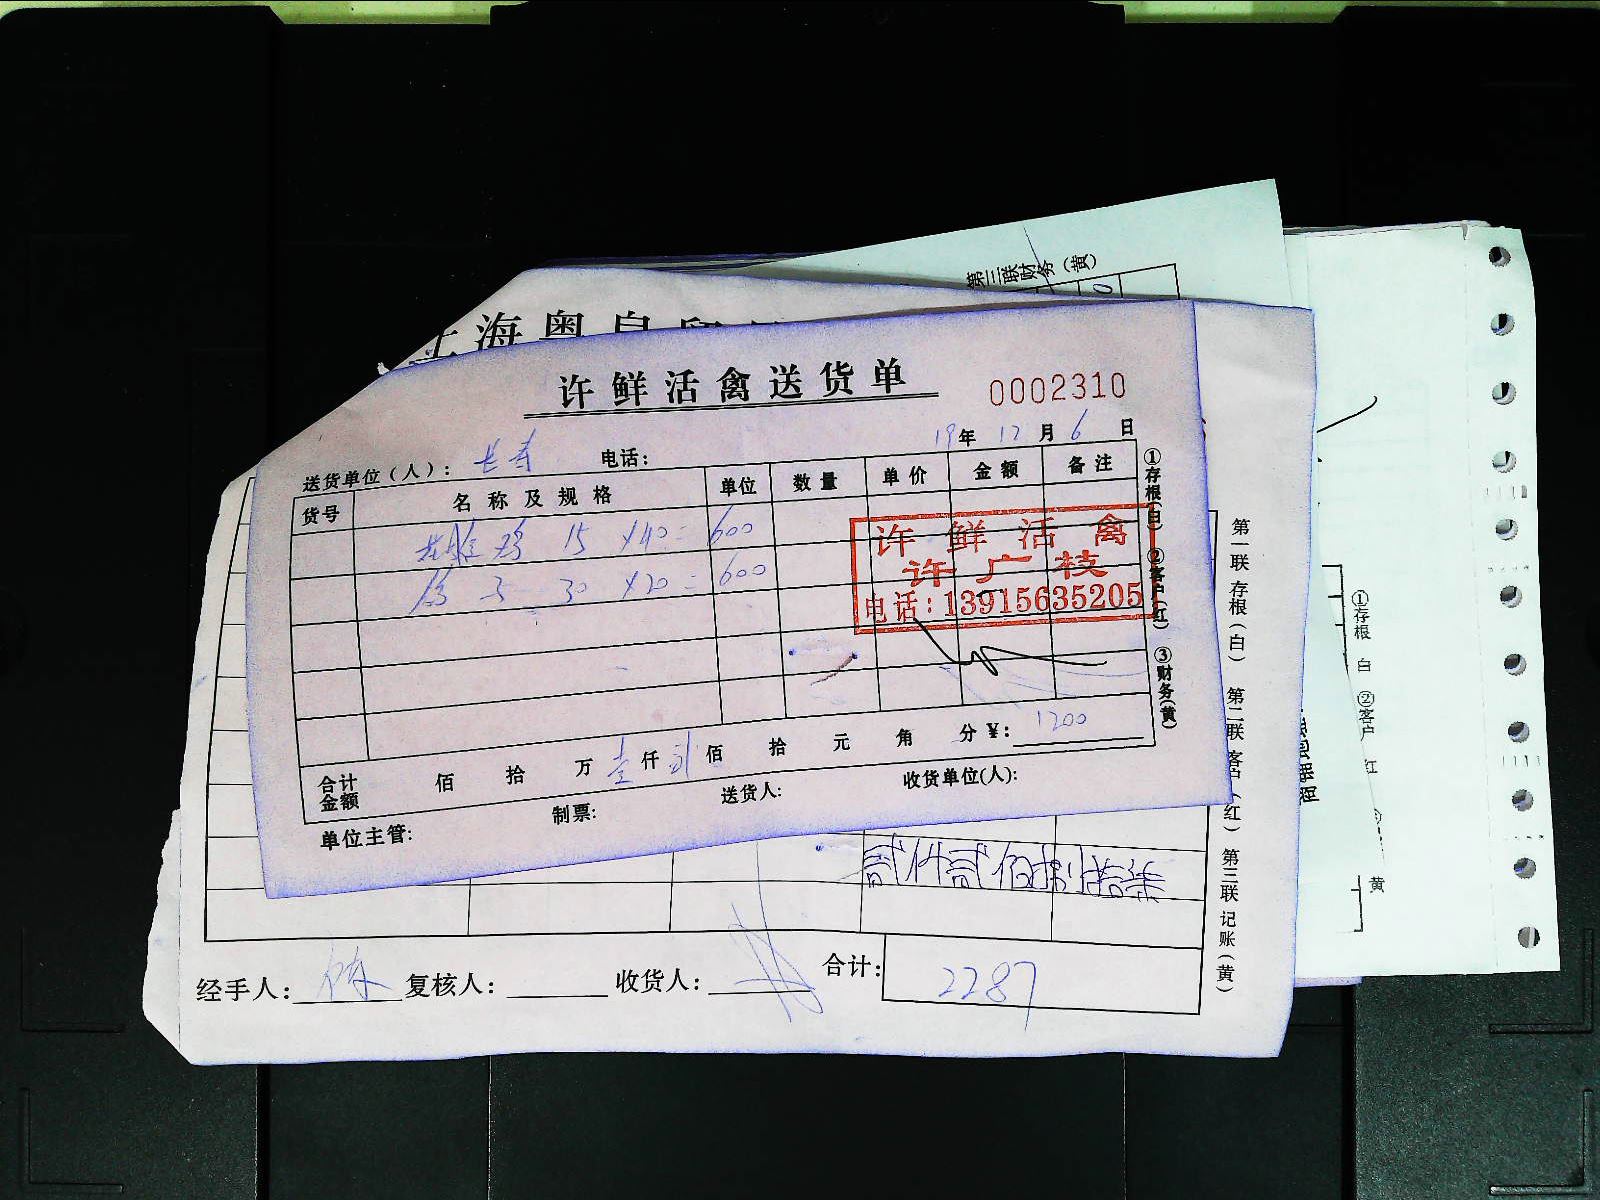 第三联财务(黄)
上海粤
许鲜活禽送货单
0002310
送货单位(人): 长寿 电话: 19年 12月 6日
货号 名称及规格 单位 数量 单价 金额 备注
鸡 15 ×40= 600
30 ×20= 600
许鲜活禽
许广枝
电话:13915635205
合计金额 佰 拾 万 壹仟 贰佰 拾 元 角 分 ¥: 1200
单位主管: 制票: 送货人: 收货单位(人):
①存根(白) ②客户(红) ③财务(黄)
贰仟贰佰捌拾柒
经手人: 复核人: 收货人: 合计: 2287
第一联 存根(白) 第二联 客户(红) 第三联 记账(黄)
①存根 白 ②客户 红
黄